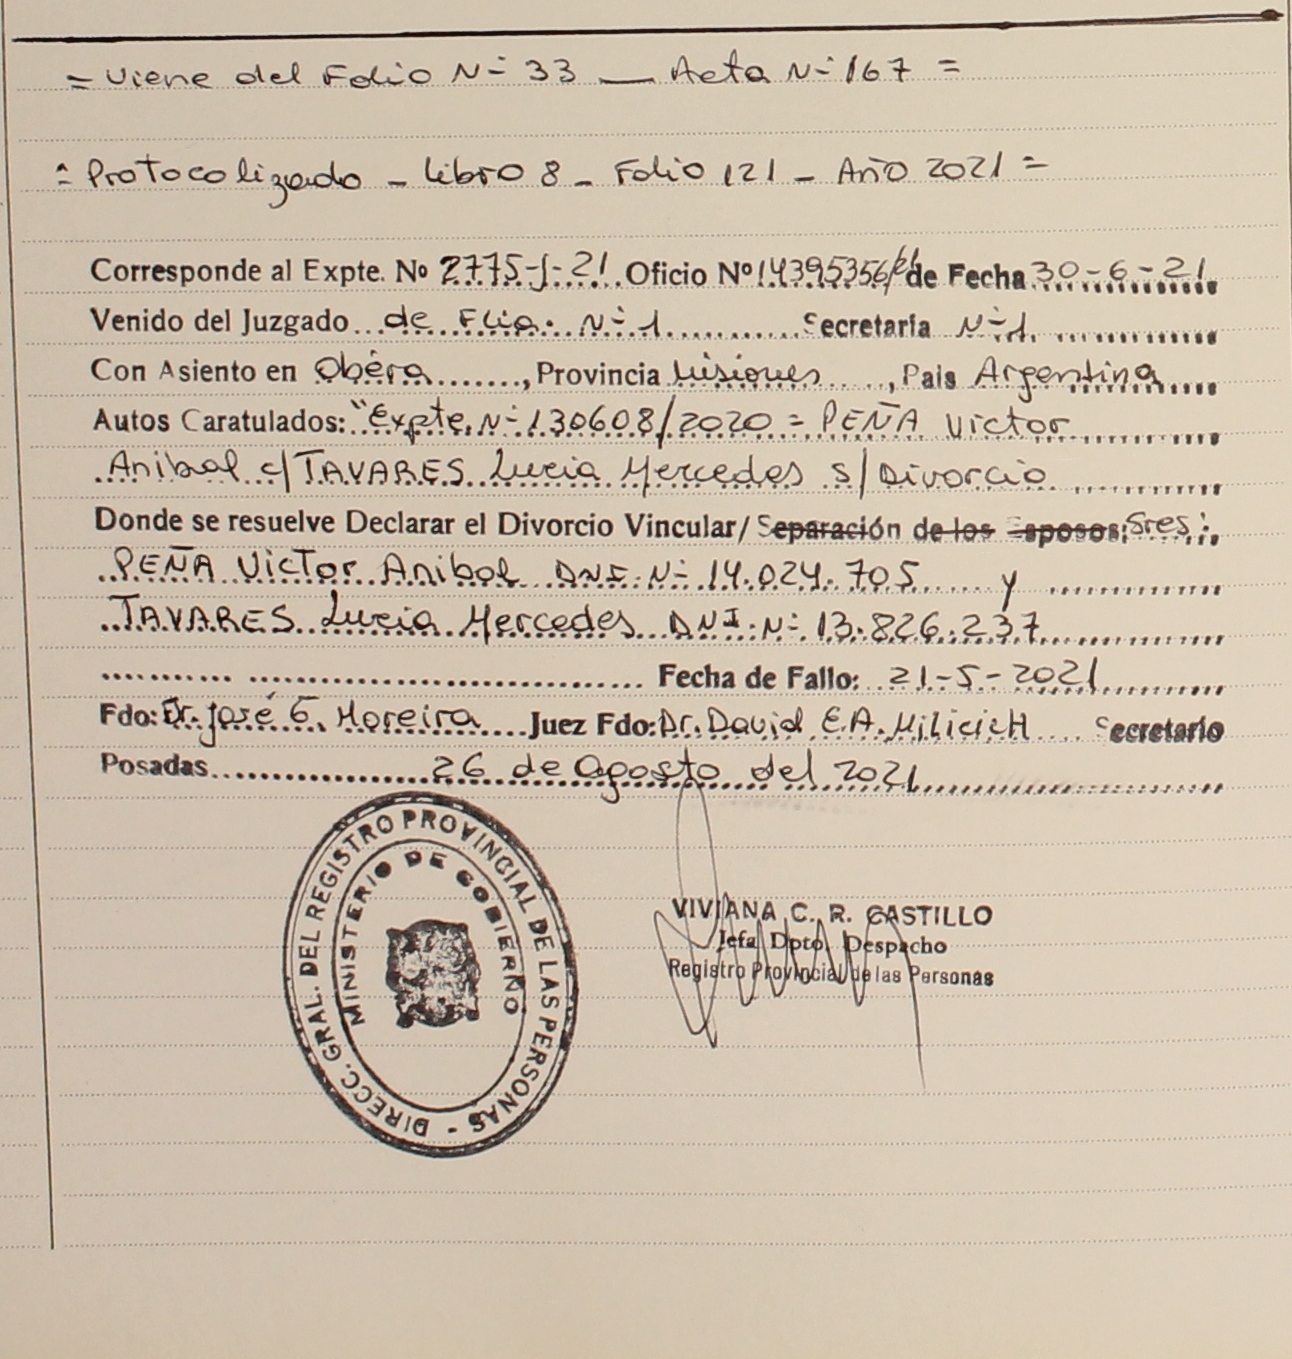 = Viene del Folio Nº 33 — Acta Nº 167 =
= Protocolizado - Libro 8 - Folio 121 - Año 2021 =
Corresponde al Expte. Nº 2775-J-21 Oficio Nº 14395356/21 de Fecha 30-6-21
Venido del Juzgado de Flia. Nº 1 Secretaría Nº 1
Con Asiento en Oberá, Provincia Misiones, Pais Argentina
Autos Caratulados: "Expte. Nº 130608/2020 = PEÑA Victor
Anibal c/ TAVARES Lucia Mercedes s/ Divorcio
Donde se resuelve Declarar el Divorcio Vincular/ Separación de los Esposos: Sres:
PEÑA Victor Anibal DNI. Nº 14.024.705 y
TAVARES Lucia Mercedes DNI. Nº 13.826.237
Fecha de Fallo: 21-5-2021
Fdo: Dr. José G. Moreira Juez Fdo: Dr. David E.A. Milicich Secretario
Posadas 26 de agosto del 2021
DIRECC. GRAL. DEL REGISTRO PROVINCIAL DE LAS PERSONAS -
MINISTERIO DE GOBIERNO
VIVIANA C. R. CASTILLO
Jefa Dpto. Despacho
Registro Provincial de las Personas